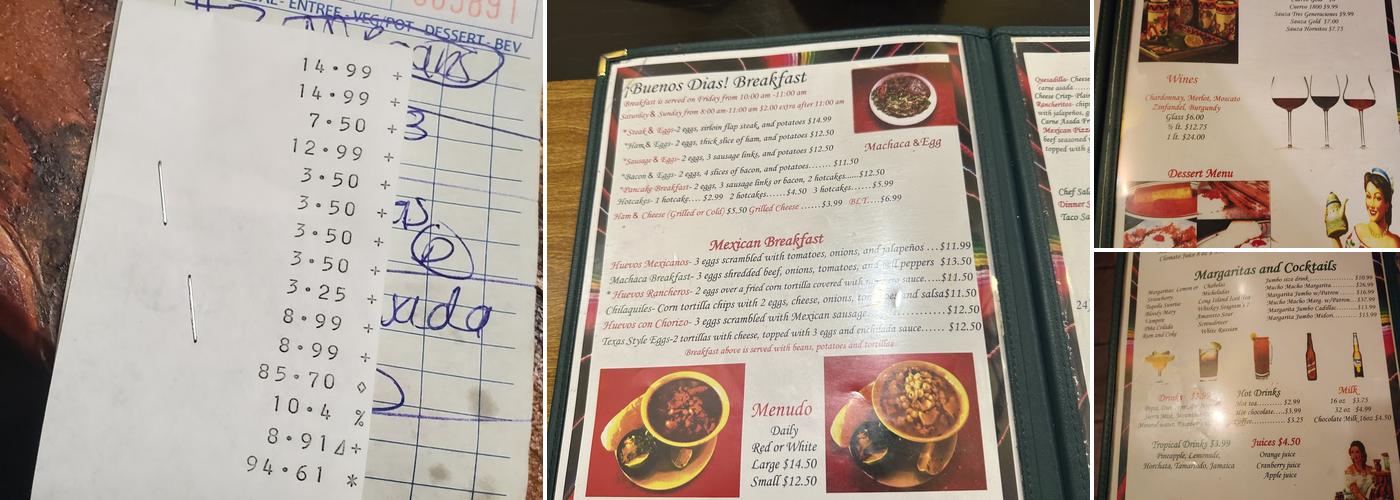 ENTREE VEG/POT DESSERT-BEV
14.99 +
14.99 +
7.50 +
12.99 +
3.50 +
3.50 +
3.50 +
3.50 +
3.25 +
8.99 +
8.99 +
85.70 ◊
10.4 %
8.91 Δ+
94.61 *
¡Buenos Dias! Breakfast
Breakfast is served on Friday from 10:00 am -11:00 am
Saturday & Sunday from 8:00 am-11:00 am $2.00 extra after 11:00 am
*Steak & Eggs-2 eggs, sirloin flap steak, and potatoes $14.99
*Ham & Eggs- 2 eggs, thick slice of ham, and potatoes $12.50
*Sausage & Eggs- 2 eggs, 3 sausage links, and potatoes $12.50
*Bacon & Eggs- 2 eggs, 4 slices of bacon, and potatoes....... $11.50
*Pancake Breakfast- 2 eggs, 3 sausage links or bacon, 2 hotcakes......$12.50
Hotcakes- 1 hotcake.... $2.99 2 hotcakes......$4.50 3 hotcakes......$5.99
Ham & Cheese (Grilled or Cold) $5.50 Grilled Cheese ......$3.99 BLT....$6.99
Machaca & Egg
Mexican Breakfast
Huevos Mexicanos- 3 eggs scrambled with tomatoes, onions, and jalapeños ...$11.99
Machaca Breakfast- 3 eggs shredded beef, onions, tomatoes, and bell peppers $13.50
* Huevos Rancheros- 2 eggs over a fried corn tortilla covered with sauce......$11.50
Chilaquiles- Corn tortilla chips with 2 eggs, cheese, onions, and salsa$11.50
Huevos con Chorizo- 3 eggs scrambled with Mexican sausage..........$12.50
Texas Style Eggs-2 tortillas with cheese, topped with 3 eggs and enchilada sauce...... $12.50
Breakfast above is served with beans, potatoes and tortillas
Menudo
Daily
Red or White
Large $14.50
Small $12.50
Quesadilla- Cheese
carne asada
Cheese Crisp- Plain
Rancheritos- chips
with jalapeños, g
Carne Asada Fr
Mexican Pizza
beef seasoned
topped with g
Chef Sala
Dinner S
Taco Sa
Cuervo 1800 $9.99
Sauza Tres Generaciones $9.99
Sauza Gold $7.00
Sauza Hornitos $7.75
Wines
Chardonnay, Merlot, Moscato
Zinfandel, Burgundy
Glass $6.00
½ lt. $12.75
1 lt. $24.00
Dessert Menu
Margaritas and Cocktails
Strawberry
Tequila Sunrise
Bloody Mary
Vampiro
Piña Colada
Rum and Coke
Chabelas
Micheladas
Long Island Iced Tea
Whiskey Seagram's 7
Amaretto Sour
Screwdriver
White Russian
Jumbo size drink
Mucho Macho Margarita
Margarita Jumbo w/Patron
Mucho Macho Marg. w/Patron
Margarita Jumbo Cadillac
Margarita Jumbo Midori
Drinks
Hot Drinks
Hot tea..........$2.99
Hot chocolate....$3.99
Coffee..........$3.25
Milk
16 oz $3.75
32 oz $4.99
Chocolate Milk 16oz $4.50
Tropical Drinks $3.99
Pineapple, Lemonade,
Horchata, Tamarindo, Jamaica
Juices $4.50
Orange juice
Cranberry juice
Apple juice